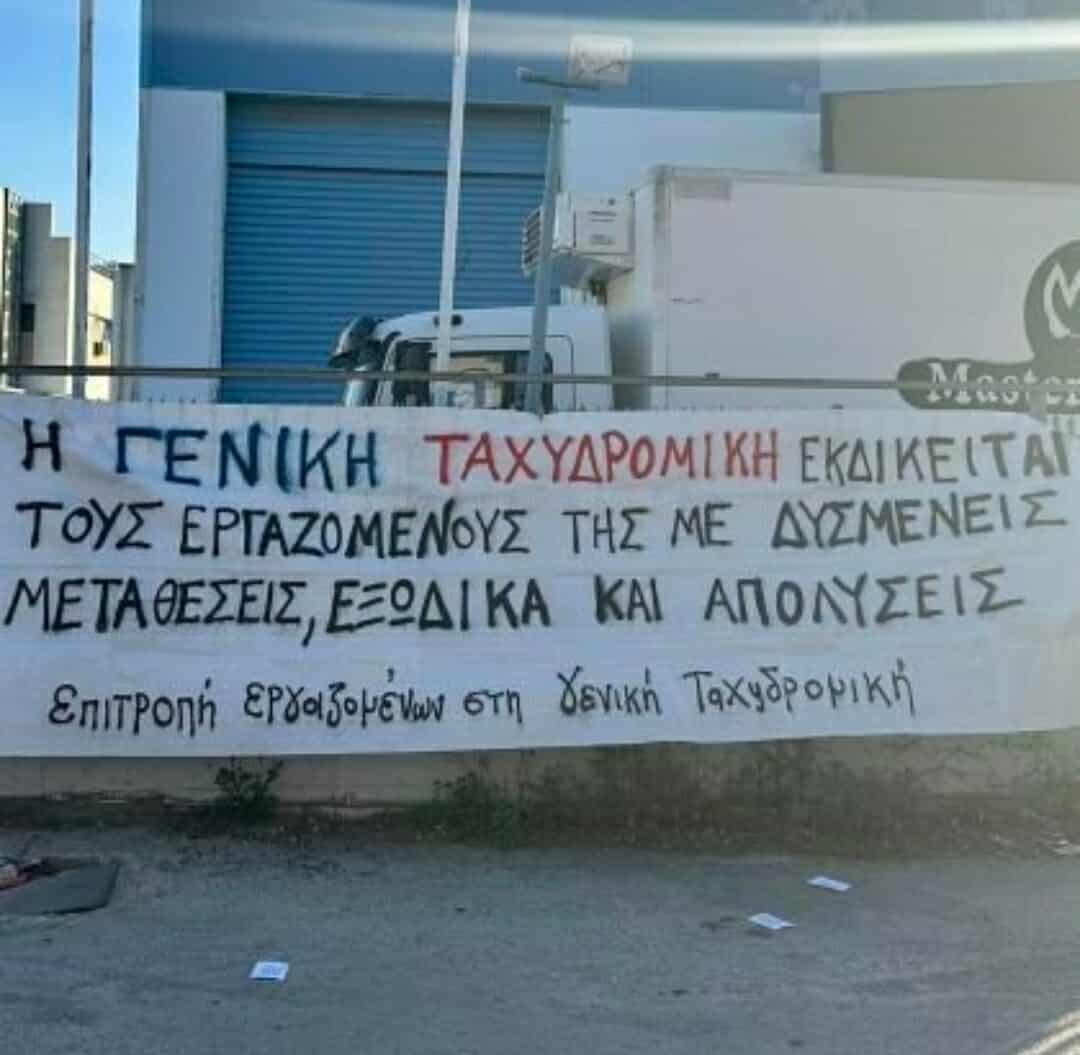 Master
Η ΓΕΝΙΚΗ ΤΑΧΥΔΡΟΜΙΚΗ ΕΚΔΙΚΕΙΤΑΙ
ΤΟΥΣ ΕΡΓΑΖΟΜΕΝΟΥΣ ΤΗΣ ΜΕ ΔΥΣΜΕΝΕΙΣ
ΜΕΤΑΘΕΣΕΙΣ, ΕΞΩΔΙΚΑ ΚΑΙ ΑΠΟΛΥΣΕΙΣ
Επιτροπή εργαζομένων στη Γενική Ταχυδρομική